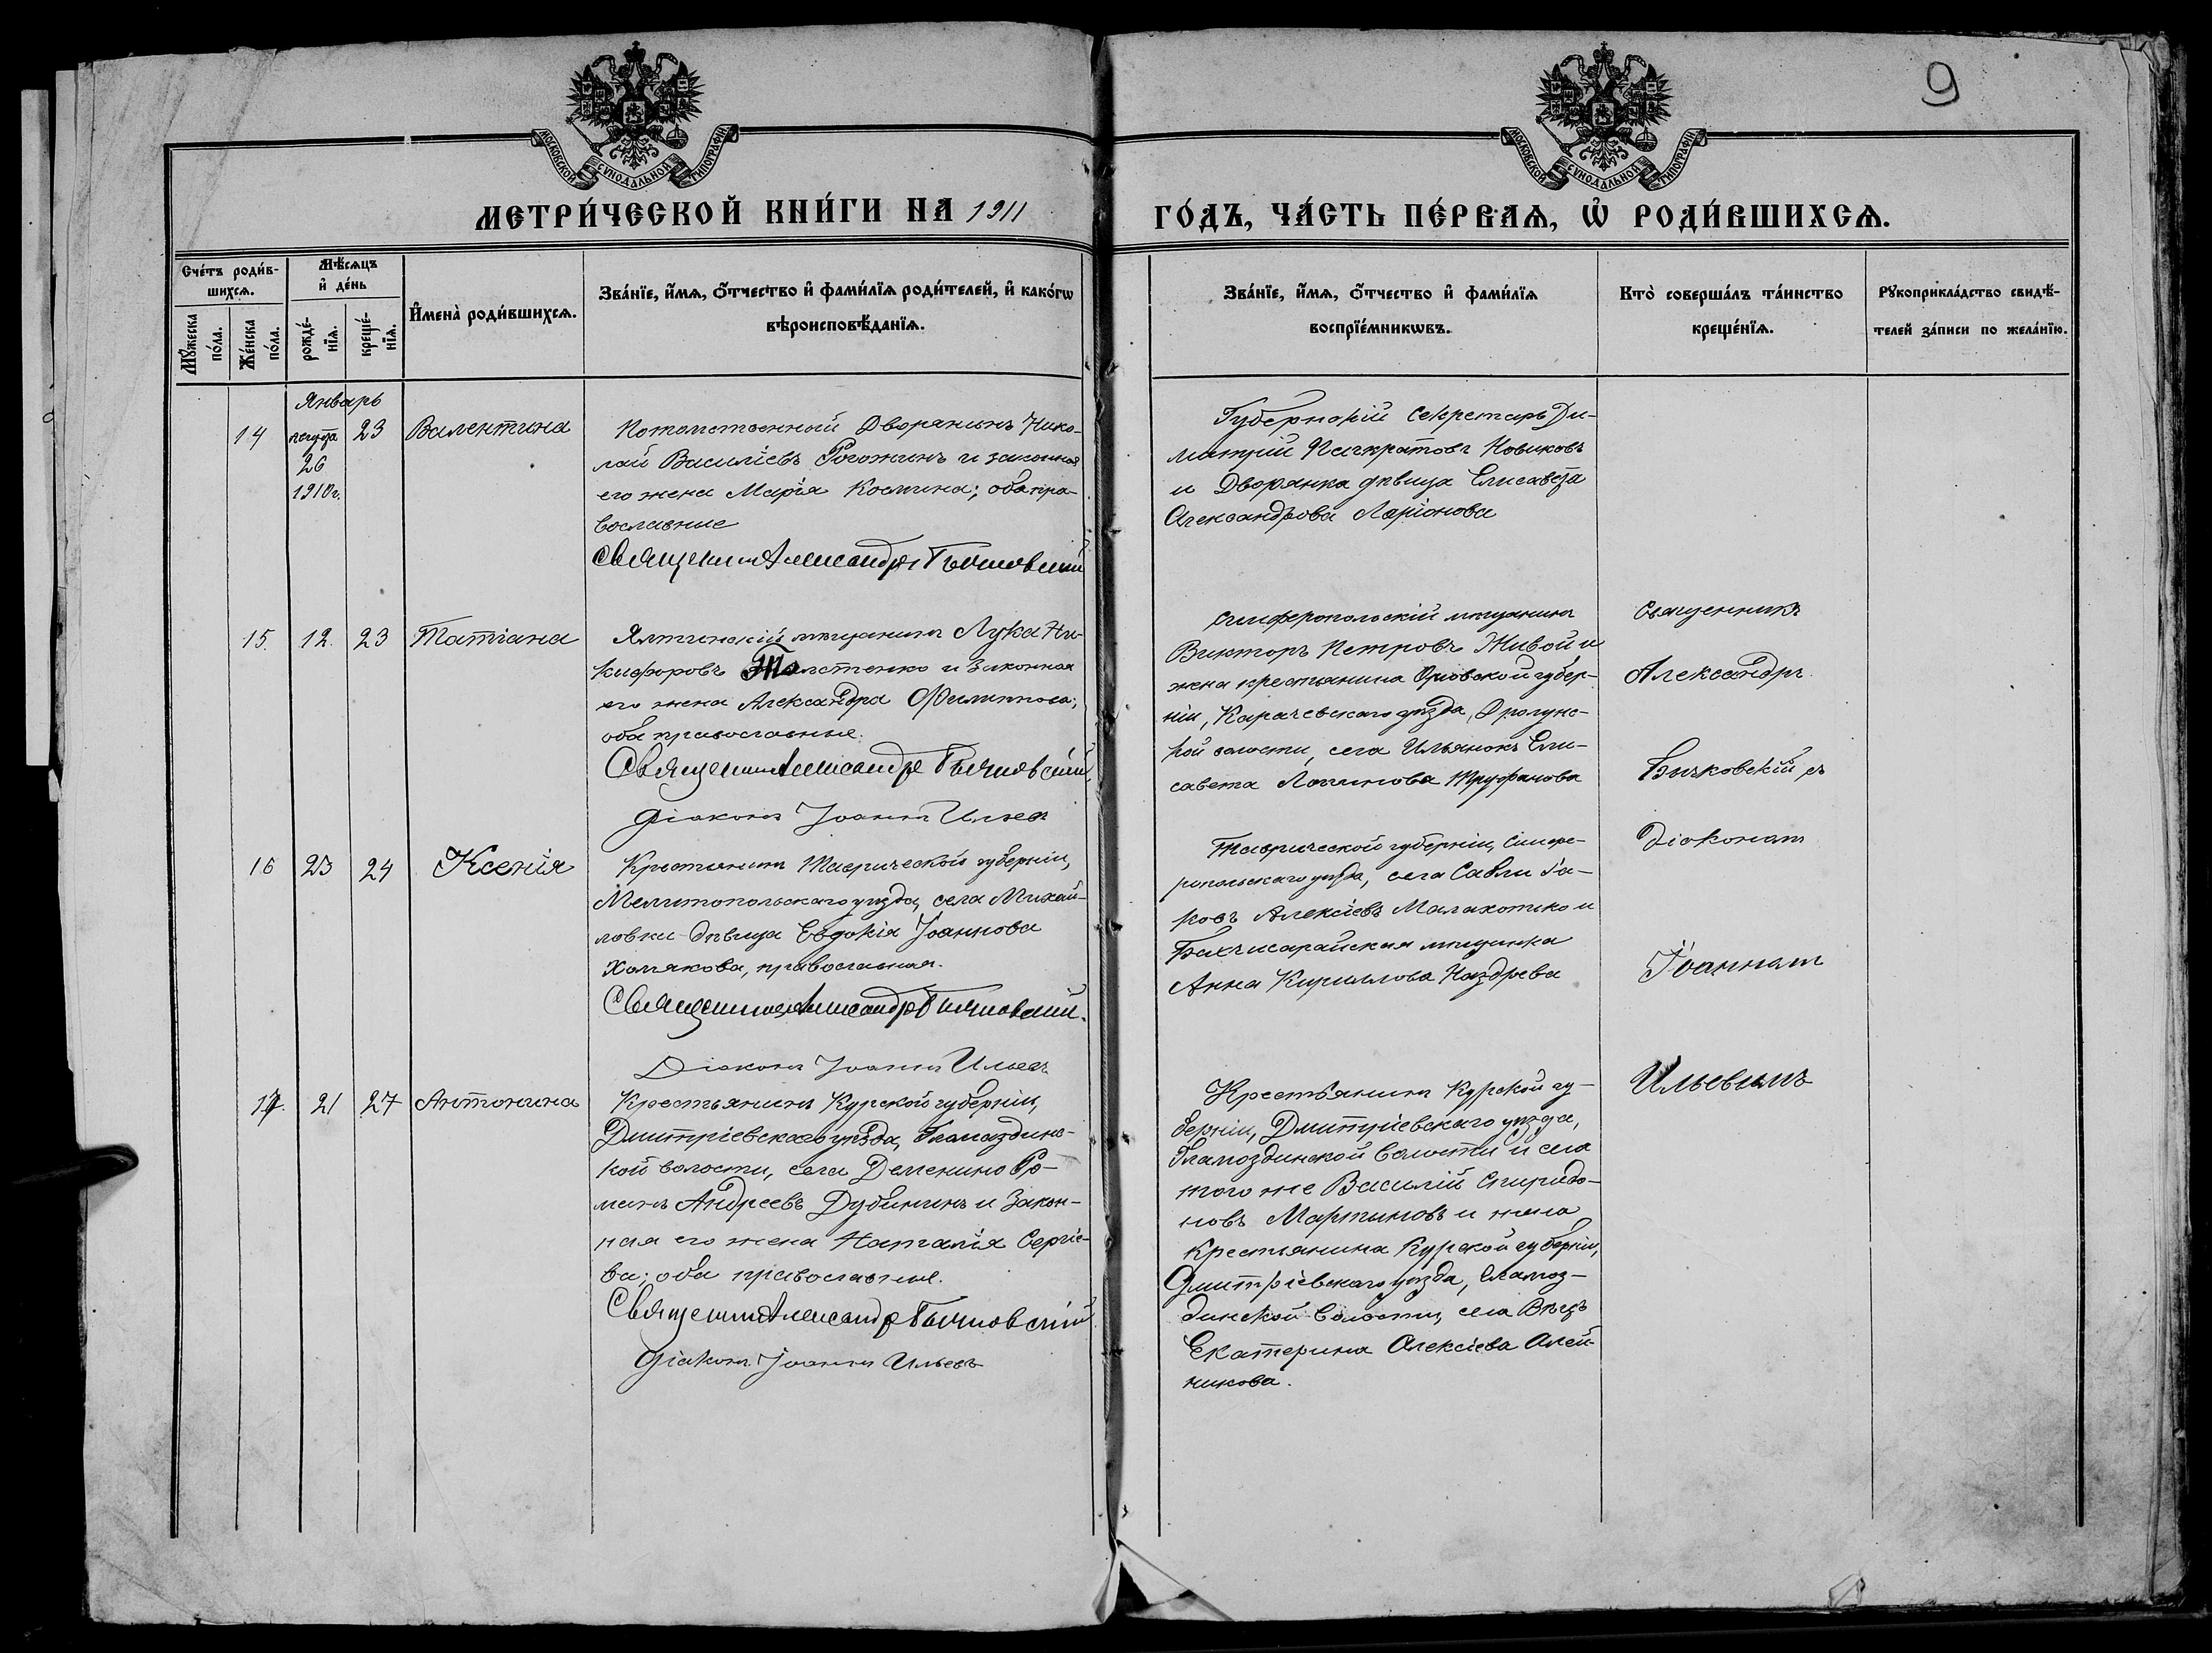 9
МОСКОВСКОЙ СУНОДАЛЬНОЙ ТИПОГРАФІИ
МОСКОВСКОЙ СУНОДАЛЬНОЙ ТИПОГРАФІИ
МЕТРИ́ЧЕСКОЙ КНИ́ГИ НА 1911
ГО́ДЪ, ЧА́СТЬ ПЕ́РВАѦ, Ѡ҆ РОДИ́ВШИХСѦ.
Сче́тъ роди́в-
шихсѧ.
Мꙋ́жеска по́ла.
Же́нска по́ла.
Мѣ́сѧцъ
и҆ де́нь
рожде́-
нїѧ.
креще́-
нїѧ.
И҆мена̀ роди́вшихсѧ.
Зва́нїе, и҆́мѧ, ѻ҆́тчество и҆ фами́лїѧ роди́телей, и҆ како́гѡ
вѣроисповѣ́данїѧ.
Зва́нїе, и҆́мѧ, ѻ҆́тчество и҆ фами́лїѧ
воспрїе́мникѡвъ.
Кто̀ соверша́лъ та́инство
креще́нїѧ.
Рꙋкоприкла́дство свидѣ́-
телей за́писи по жела́нїю.
Январь
14
26
1910 г.
23
Валентина
Потомственный Дворянинъ Нико-
лай Василіевъ Рогожинъ и законная
его жена Марія Космина; оба пра-
вославные
Священникъ Александръ Бычковскій
Губернскій Секретарь Ди-
митрій Панкратовъ Новиковъ
и Дворянка дѣвица Елисавета
Александрова Ларіонова
15. 12. 23 Татіана
Ялтинскій мѣщанинъ Лука Ни-
кифоровъ Толстенко и законная
его жена Александра Филиппова;
оба православные.
Священникъ Александръ Бычковскій
Діаконъ Іоаннъ Ильевъ
Симферопольскій мѣщанинъ
Викторъ Петровъ Живой и
жена крестьянина Орловской губер-
ніи, Карачевскаго уѣзда,
кой волости, села Ильянокъ Ели-
савета Логинова Труфанова
Священникъ
Александръ
Бычковскій съ
Діакономъ
Іоанномъ
Ильевымъ
16 23 24 Ксенія
Крестьянинъ Таврической губерніи,
Мелитопольскаго уѣзда, села Михай-
ловки дѣвица Евдокія Іоаннова
Холякова, православная.
Священникъ Александръ Бычковскій.
Діаконъ Іоаннъ Ильевъ
Таврической губерніи, Симфе-
ропольскаго уѣзда, села Саблы Іа-
ковъ Алексіевъ Малахотько и
Бахчисарайская мѣщанка
Анна Кириллова Наздрева
17. 21 27 Антонина
Крестьянинъ Курской губерніи,
Дмитріевскаго уѣзда, Гламаздинс-
кой волости, села Деменино Ро-
манъ Андреевъ Дубининъ и закон-
ная его жена Наталія Сергіе-
ва; оба православные.
Священникъ Александръ Бычковскій
Діаконъ Іоаннъ Ильевъ
Крестьянинъ Курской гу-
берніи, Дмитріевскаго уѣзда,
Гламоздинской волости и села
того же Василій Спиридо-
новъ Мартиновъ и жена
крестьянина Курской губерніи,
Дмитріевскаго уѣзда, Гламоз-
динской волости, села
Екатерина Алексіева Алей-
никова.